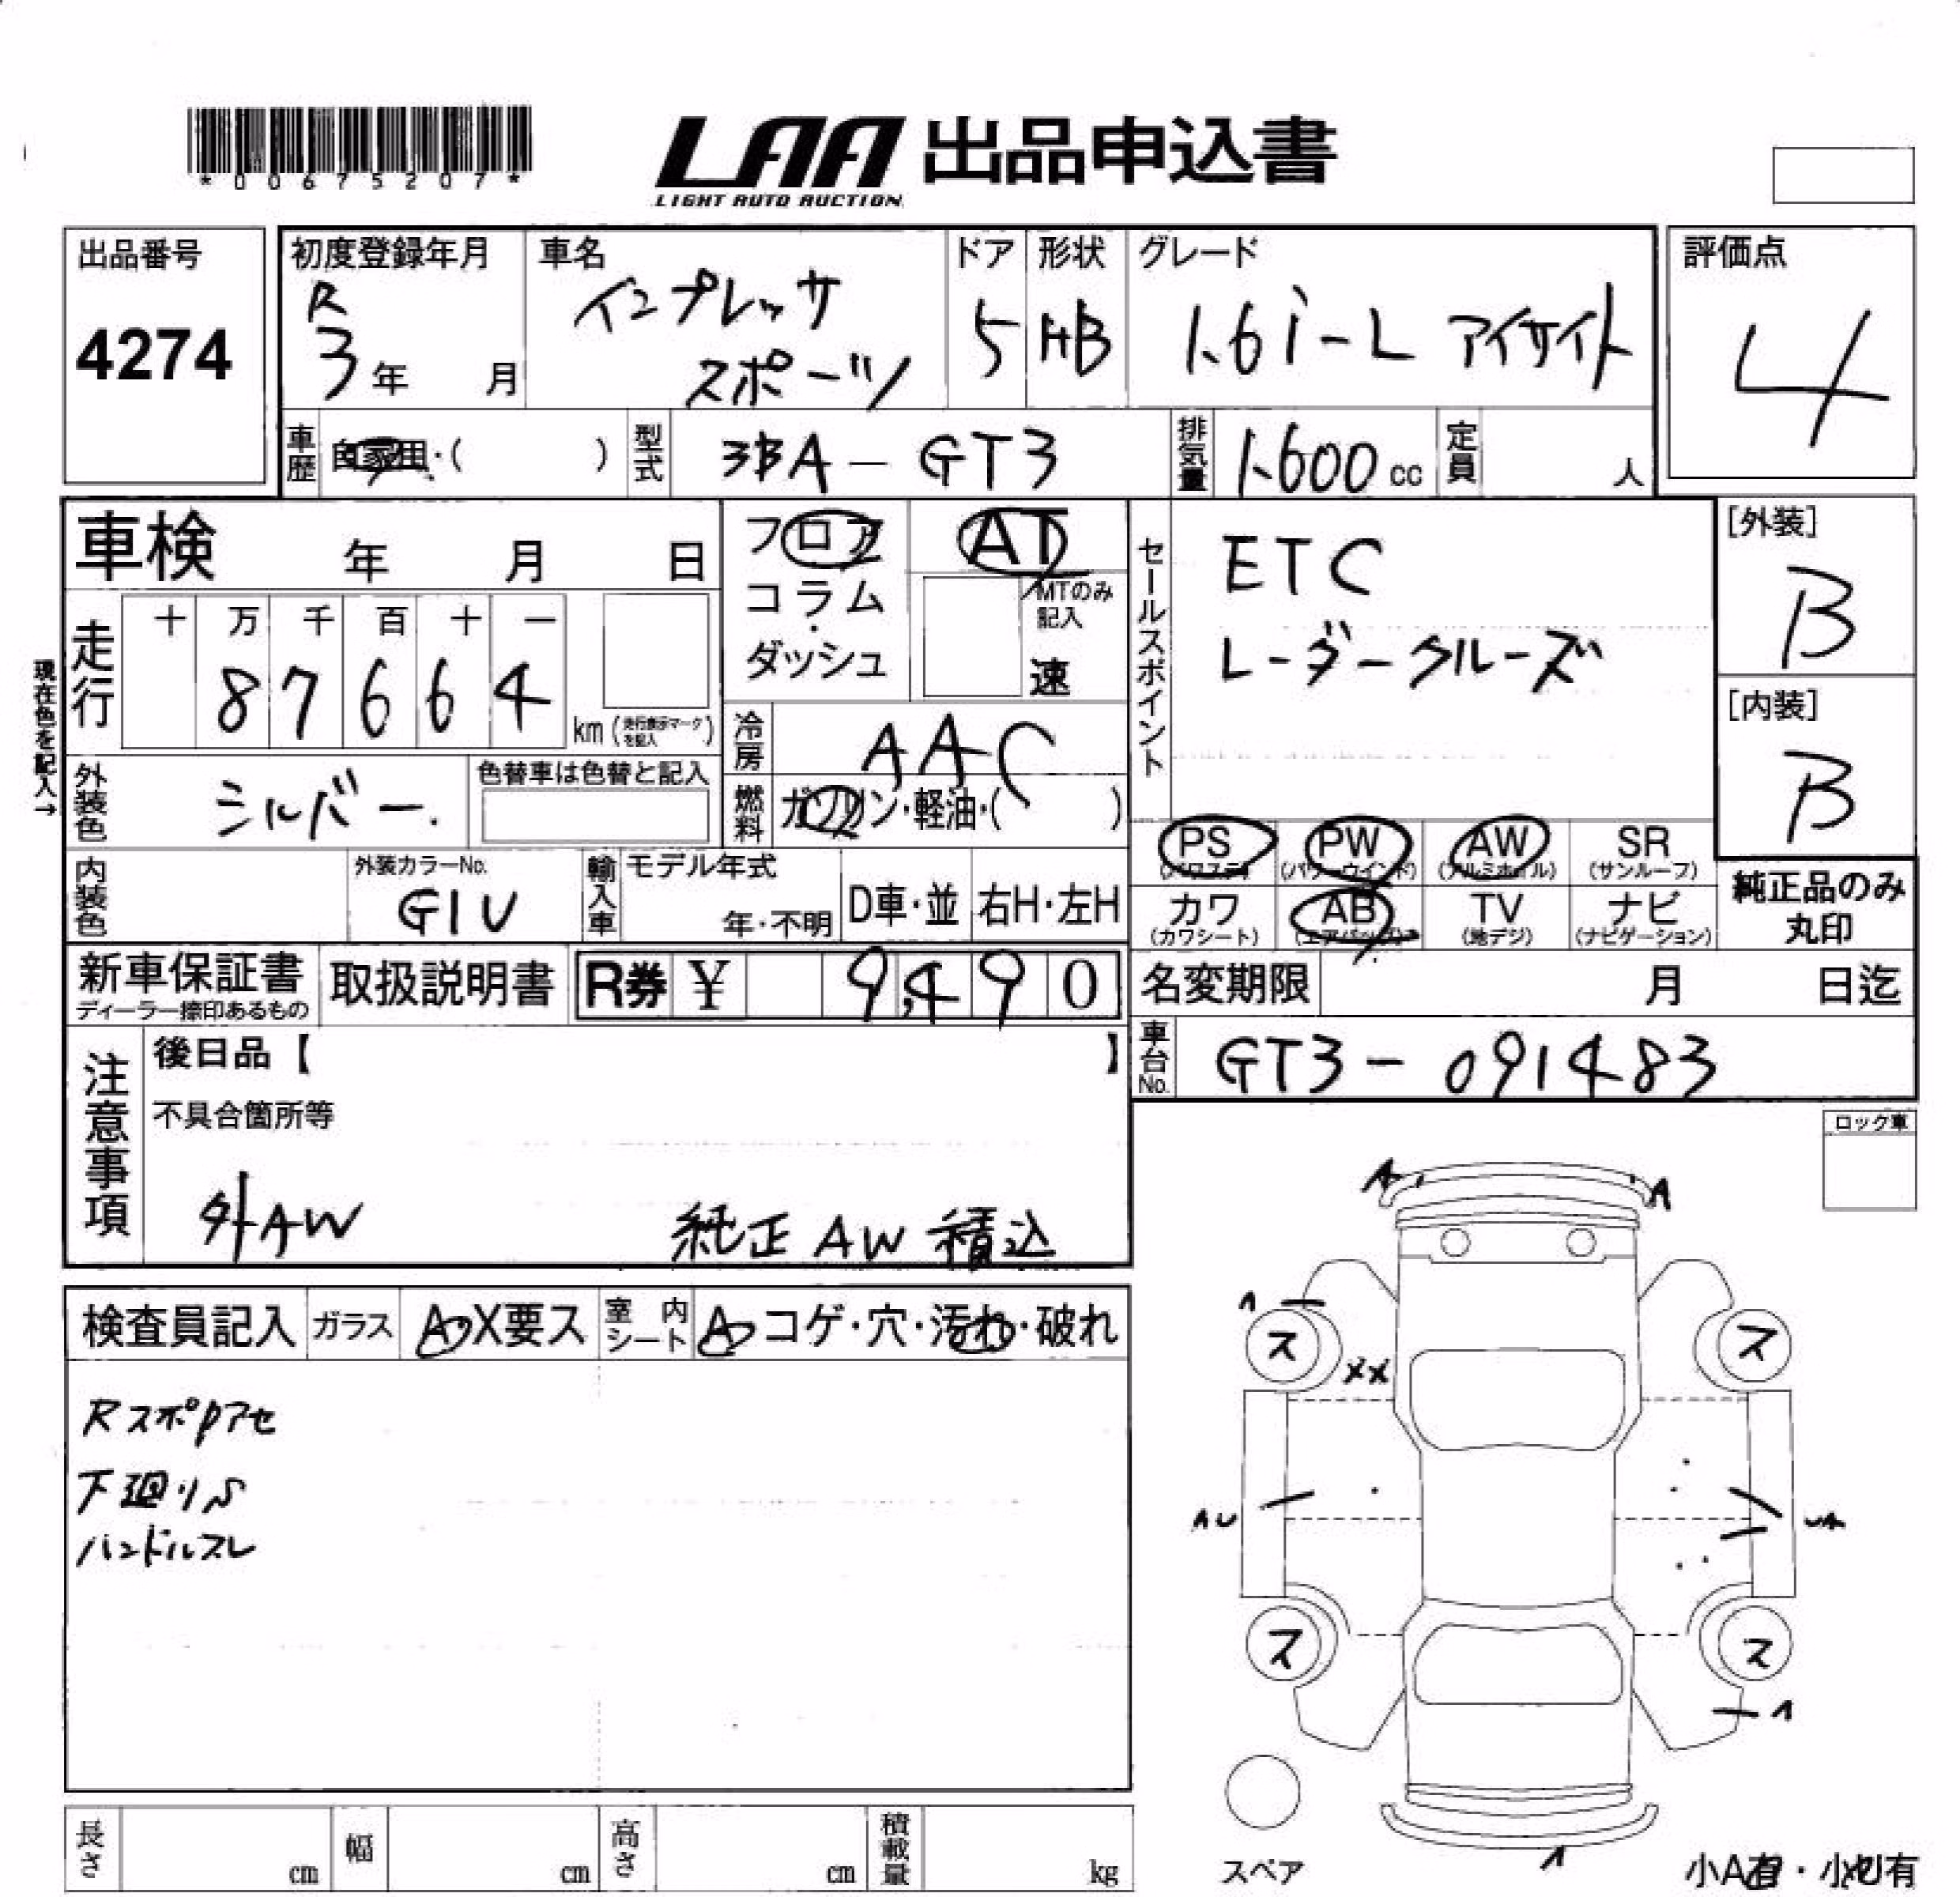 *00675207*
LAA 出品申込書
LIGHT AUTO AUCTION
出品番号
4274
初度登録年月
R
3年 月
車名
インプレッサ
スポーツ
ドア
5
形状
HB
グレード
1.6i-L アイサイト
評価点
4
車歴
自家用・( )
型式
3BA-GT3
排気量
1.600cc
定員
人
車検 年 月 日
走行
十 万 千 百 十 一
87664
km(走行表示マークを記入)
現在色を記入→
フロア
コラム
・
ダッシュ
AT
MTのみ
記入
速
冷房
AAC
燃料
ガソリン・軽油・( )
セールスポイント
ETC
レーダークルーズ
[外装]
B
[内装]
B
外装色
シルバー.
色替車は色替と記入
内装色
外装カラーNo.
G1U
輸入車
モデル年式
年・不明
D車・並
右H・左H
PS
(パワステ)
PW
(パワーウインド)
AW
(アルミホイル)
SR
(サンルーフ)
カワ
(カワシート)
AB
(エアバッグ)
TV
(地デジ)
ナビ
(ナビゲーション)
純正品のみ
丸印
新車保証書
ディーラー捺印あるもの
取扱説明書
R券 ¥ 9,490
名変期限 月 日迄
車台No.
GT3-091483
注意事項
後日品【 】
不具合箇所等
外AW 純正AW積込
ロック車
検査員記入
ガラス
A・X要ス
室内シート
A・コゲ・穴・汚れ・破れ
下廻りS
ハンドルスレ
A
A
A
ス
ス
XX
AU
UA
ス
ス
A
A
スペア
小A有・小U有
長さ
cm
幅
cm
高さ
cm
積載量
kg